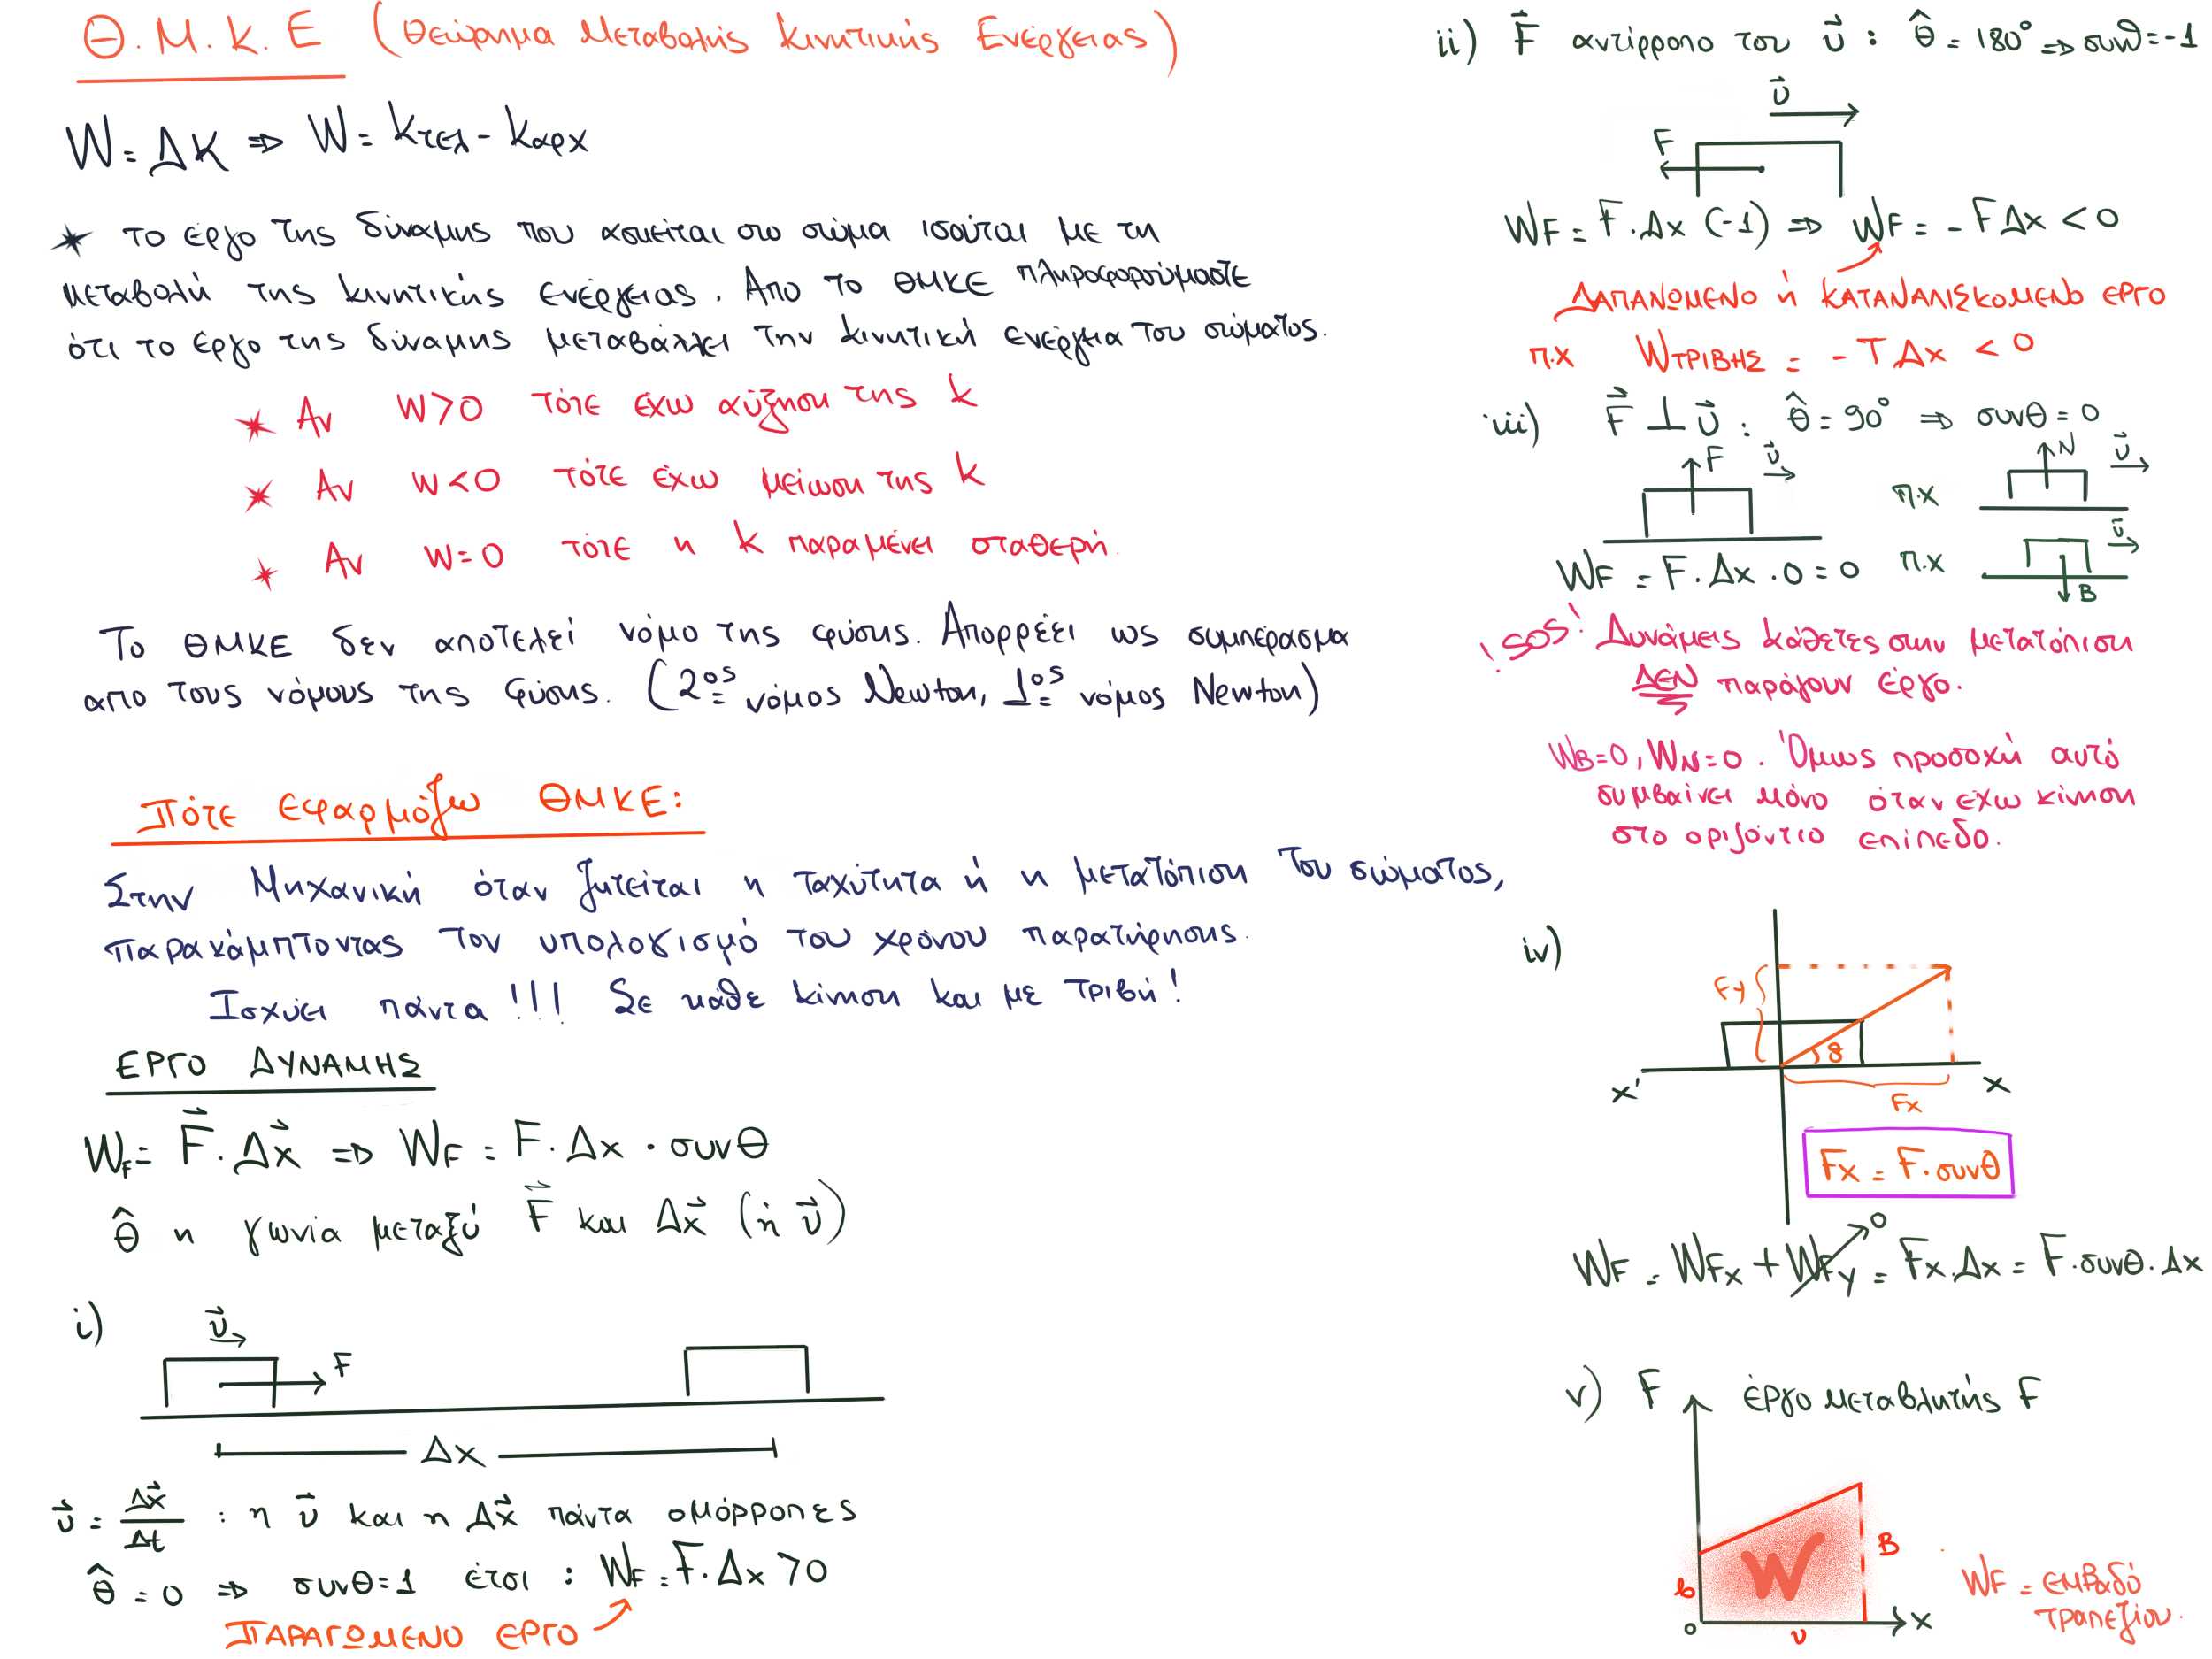 Θ.Μ.Κ.Ε (Θεώρημα Μεταβολής Κινητικής Ενέργειας)
W = ΔΚ ⇒ W = Κτελ - Καρχ
* το έργο της δύναμης που ασκείται στο σώμα ισούται με τη
μεταβολή της κινητικής ενέργειας. Απο το ΘΜΚΕ πληροφορούμαστε
ότι το έργο της δύναμης μεταβάλλει την κινητική ενέργεια του σώματος.
* Αν W>0 τότε έχω αύξηση της k
* Αν W<0 τότε έχω μείωση της k
* Αν W=0 τότε η k παραμένει σταθερή.
Το ΘΜΚΕ δεν αποτελεί νόμο της φύσης. Απορρέει ως συμπέρασμα
απο τους νόμους της φύσης. (2ος νόμος Newton, 1ος νόμος Newton)
Πότε εφαρμόζω ΘΜΚΕ:
Στην Μηχανική όταν ζητείται η ταχύτητα ή η μετατόπιση του σώματος,
παρακάμπτοντας τον υπολογισμό του χρόνου παρατήρησης.
Ισχύει πάντα!!! Σε κάθε κίνηση και με τριβή!
ΕΡΓΟ ΔΥΝΑΜΗΣ
W_F = F⃗ · Δx⃗ ⇒ W_F = F · Δx · συνθ
θ̂ η γωνία μεταξύ F⃗ και Δx⃗ (ή υ⃗)
i)
υ⃗
F
Δx
υ⃗ = Δx⃗/Δt : η υ⃗ και η Δx⃗ πάντα ομόρροπες
θ̂ = 0 ⇒ συνθ=1 έτσι : W_F = F·Δx >0
ΠΑΡΑΓΩΜΕΝΟ ΕΡΓΟ
ii) F⃗ αντίρροπο του υ⃗ : θ̂ = 180° ⇒ συνθ=-1
υ⃗
F
W_F = F·Δx (-1) ⇒ W_F = - FΔx < 0
ΔΑΠΑΝΩΜΕΝΟ ή ΚΑΤΑΝΑΛΙΣΚΟΜΕΝΟ ΕΡΓΟ
π.χ W_ΤΡΙΒΗΣ = - T Δx < 0
iii) F⃗ ⊥ υ⃗ : θ̂ = 90° ⇒ συνθ = 0
F υ⃗
π.χ N υ⃗
W_F = F·Δx·0 = 0
π.χ υ⃗ B
!SOS! Δυνάμεις κάθετες στην μετατόπιση
ΔΕΝ παράγουν έργο.
W_B=0, W_N=0. Όμως προσοχή αυτό
συμβαίνει μόνο όταν έχω κίνηση
στο οριζόντιο επίπεδο.
iv)
Fy
θ
x' x
Fx
Fx = F·συνθ
W_F = W_Fx + W_Fy 0 = Fx·Δx = F·συνθ·Δx
v) F έργο μεταβλητής F
W
B
b
0 υ x
W_F = εμβαδό
τραπεζίου.